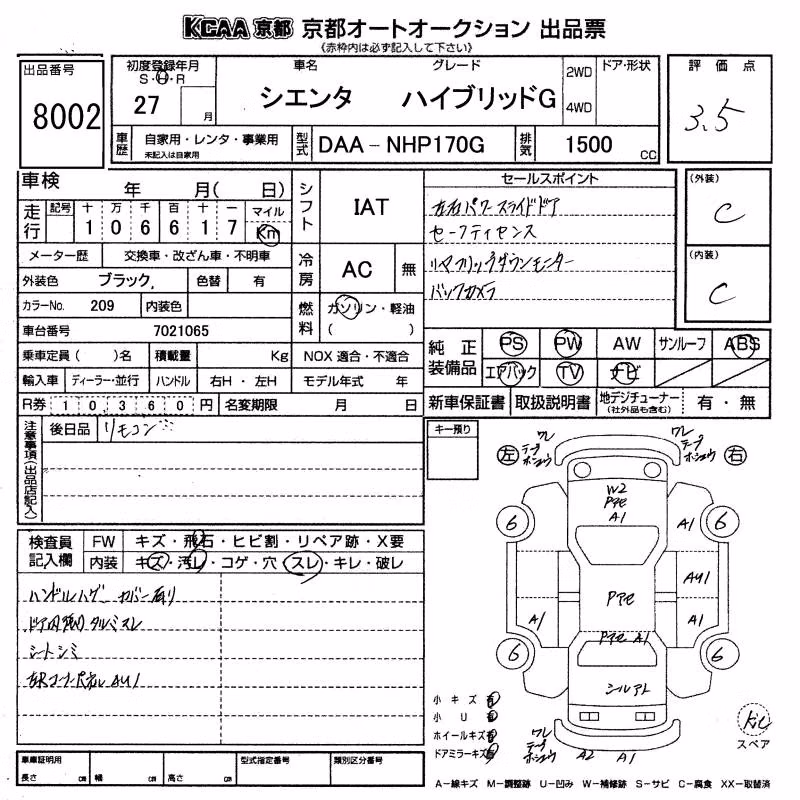 KCAA 京都 京都オートオークション 出品票
《赤枠内は必ず記入して下さい》
出品番号
8002
初度登録年月
S・H・R
27 月
車名 グレード
シエンタ ハイブリッドG
2WD
4WD
ドア・形状
評価点
3.5
車歴
自家用・レンタ・事業用
未記入は自家用
型式
DAA-NHP170G
排気
1500 cc
車検 年 月( 日)
走行
記号 十 万 千 百 十 一
1 0 6 6 1 7
マイル
Km
シフト
IAT
メーター歴 交換車・改ざん車・不明車
外装色 ブラック, 色替 有
カラーNo. 209 内装色
車台番号 7021065
冷房
AC 無
燃料
ガソリン・軽油
( )
乗車定員( )名 積載量 Kg NOX 適合・不適合
輸入車 ディーラー・並行 ハンドル 右H・左H モデル年式 年
R券 10,360円 名変期限 月 日
セールスポイント
左右パワースライドドア
セーフティセンス
リヤフリップダウンモニター
バックカメラ
(外装)
C
(内装)
C
純正装備品
PS PW AW サンルーフ ABS
エアバック TV ナビ
新車保証書 取扱説明書 地デジチューナー
(社外品も含む)
有・無
注意事項(出品店記入)
後日品 リモコン
キー預り
検査員記入欄
FW キズ・飛石・ヒビ割・リペア跡・X要
内装 キズ・汚レ・コゲ・穴・スレ・キレ・破レ
ハンドルハゲ カバー有り
ドア内張り タルミ スレ
シートシミ
左 右
ワレ
テープ
ホシュウ
ワレ
テープ
ホシュウ
W2
Pアセ
A1
6 6
A1
AU1
Pアセ
A1 A1
Pアセ A1
6 6
シールアト
小キズ 有
小U 有
ホイールキズ 有
ドアミラーキズ 有
ワレ
テープ
ホシュウ
A2 A1
スペア
車両証明用
長さ cm 幅 cm 高さ cm
型式指定番号
類別区分番号
A-線キズ M-調整跡 U-凹み W-補修跡 S-サビ C-腐食 XX-取替済